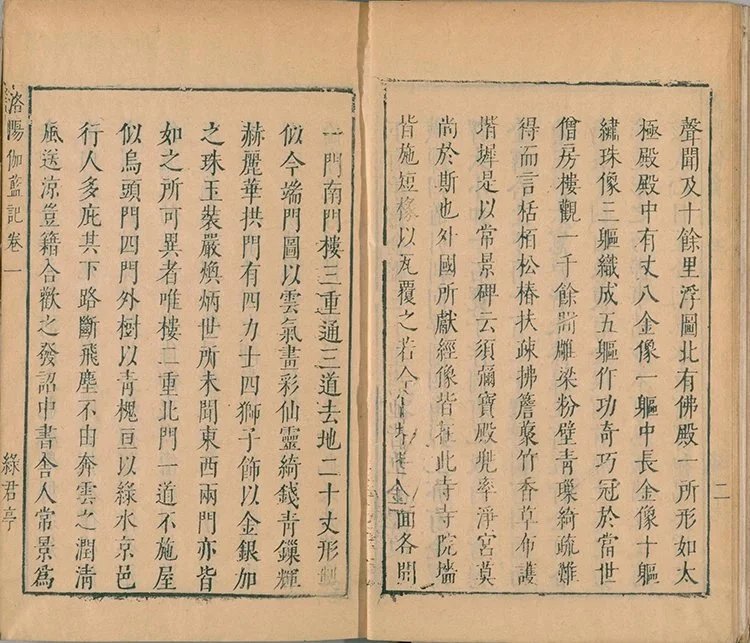 二
聲聞及十餘里浮圖北有佛殿一所形如太
極殿殿中有丈八金像一軀中長金像十軀
繡珠像三軀織成五軀作功奇巧冠於當世
僧房樓觀一千餘間雕梁粉壁青璅綺疏難
得而言栝栢松椿扶疎拂簷䕺竹香草布護
堦墀是以常景碑云須彌寶殿兜率淨宮莫
尚於斯也外國所獻經像皆在此寺寺院墻
皆施短椽以瓦覆之若今面各開
一門南門樓三重通三道去地二十丈形製
似今端門圖以雲氣畫彩仙靈綺錢青鏁輝
赫麗華拱門有四力士四獅子飾以金銀加
之珠玉裝嚴煥炳世所未聞東西兩門亦皆
如之所可異者唯樓二重北門一道不施屋
似烏頭門四門外樹以青槐亘以綠水京邑
行人多庇其下路斷飛塵不由奔雲之潤清
風送涼豈籍合歡之發詔中書舍人常景爲
洛陽伽藍記卷一
綠君亭